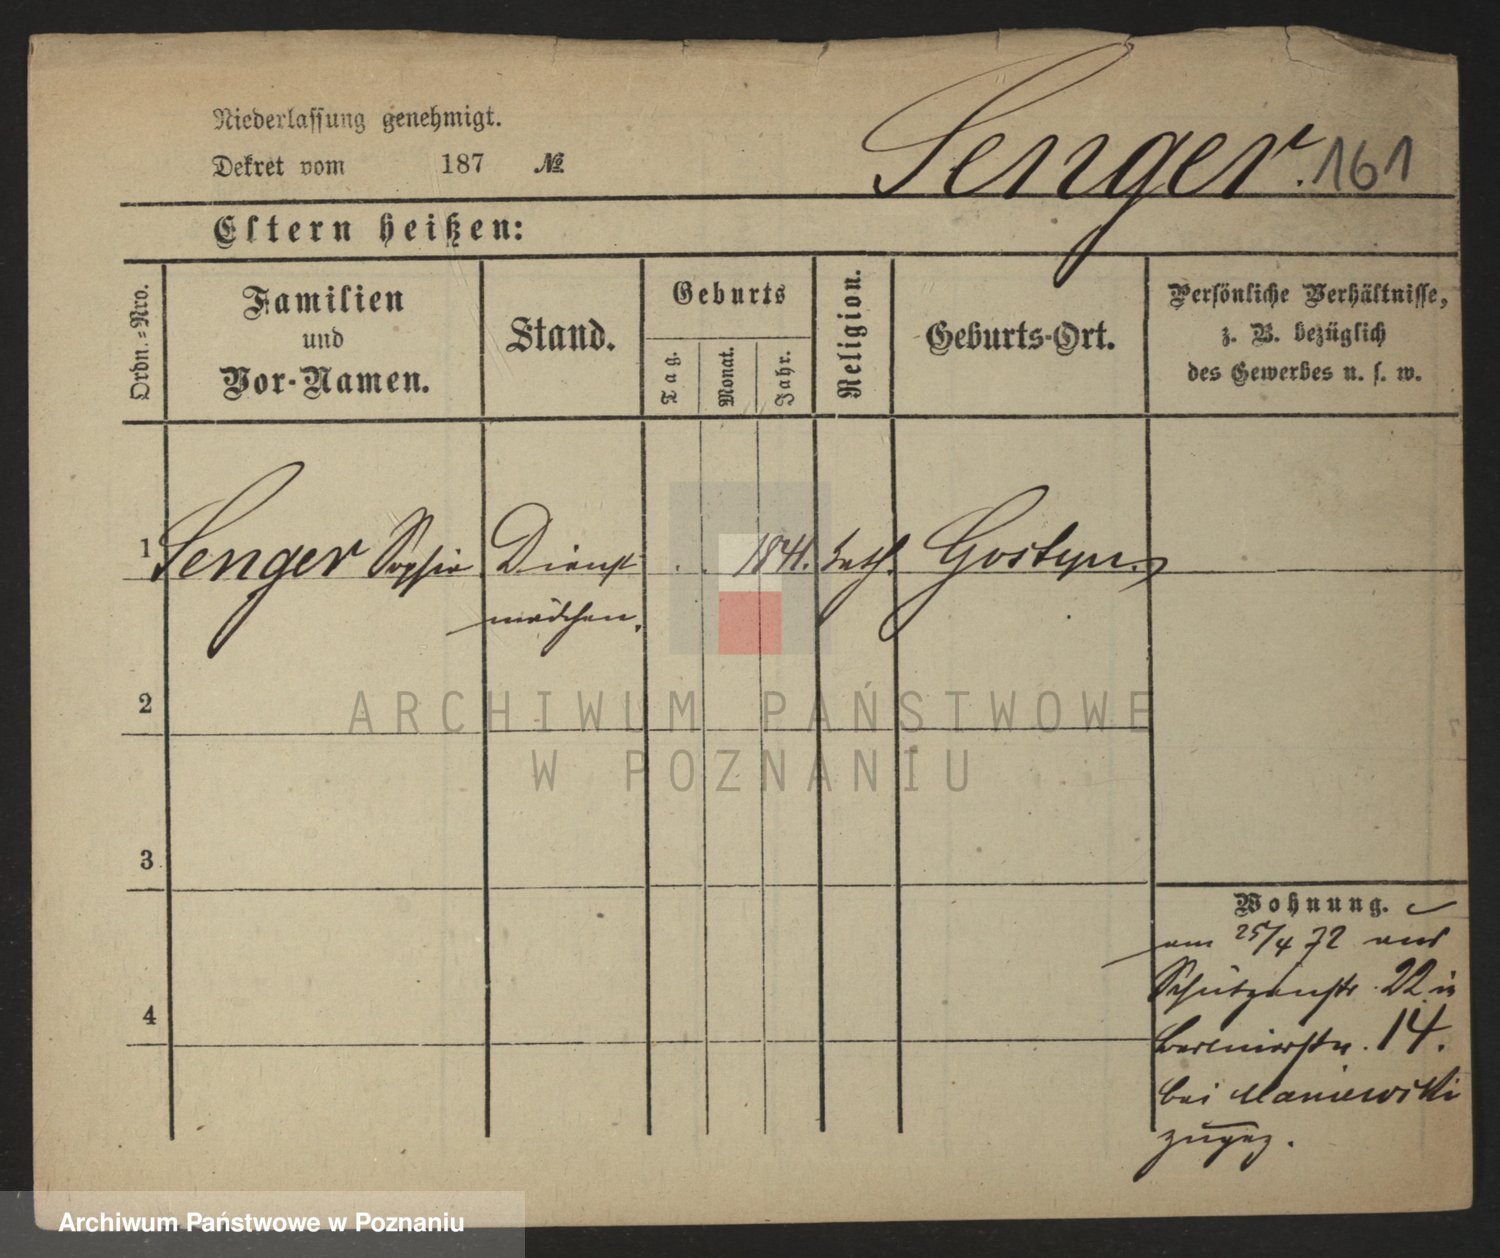 Niederlassung genehmigt.
Dekret vom 187 №
Senger. 161
Eltern heißen:
Ordn.-Nro.
Familien
und
Vor-Namen.
Stand.
Geburts
Tag.
Monat.
Jahr.
Religion.
Geburts-Ort.
Persönliche Verhältnisse,
z. B. bezüglich
des Gewerbes u. s. w.
1 Senger Sophie Dienst . . 1841. kath. Gostyn.
mädchen.
2
ARCHIWUM PAŃSTWOWE
W POZNANIU
3
Wohnung.
am 25/4 72 aus
Schützenstr. 22 in
4
14.
bei Maniewski
zugez.
Archiwum Państwowe w Poznaniu